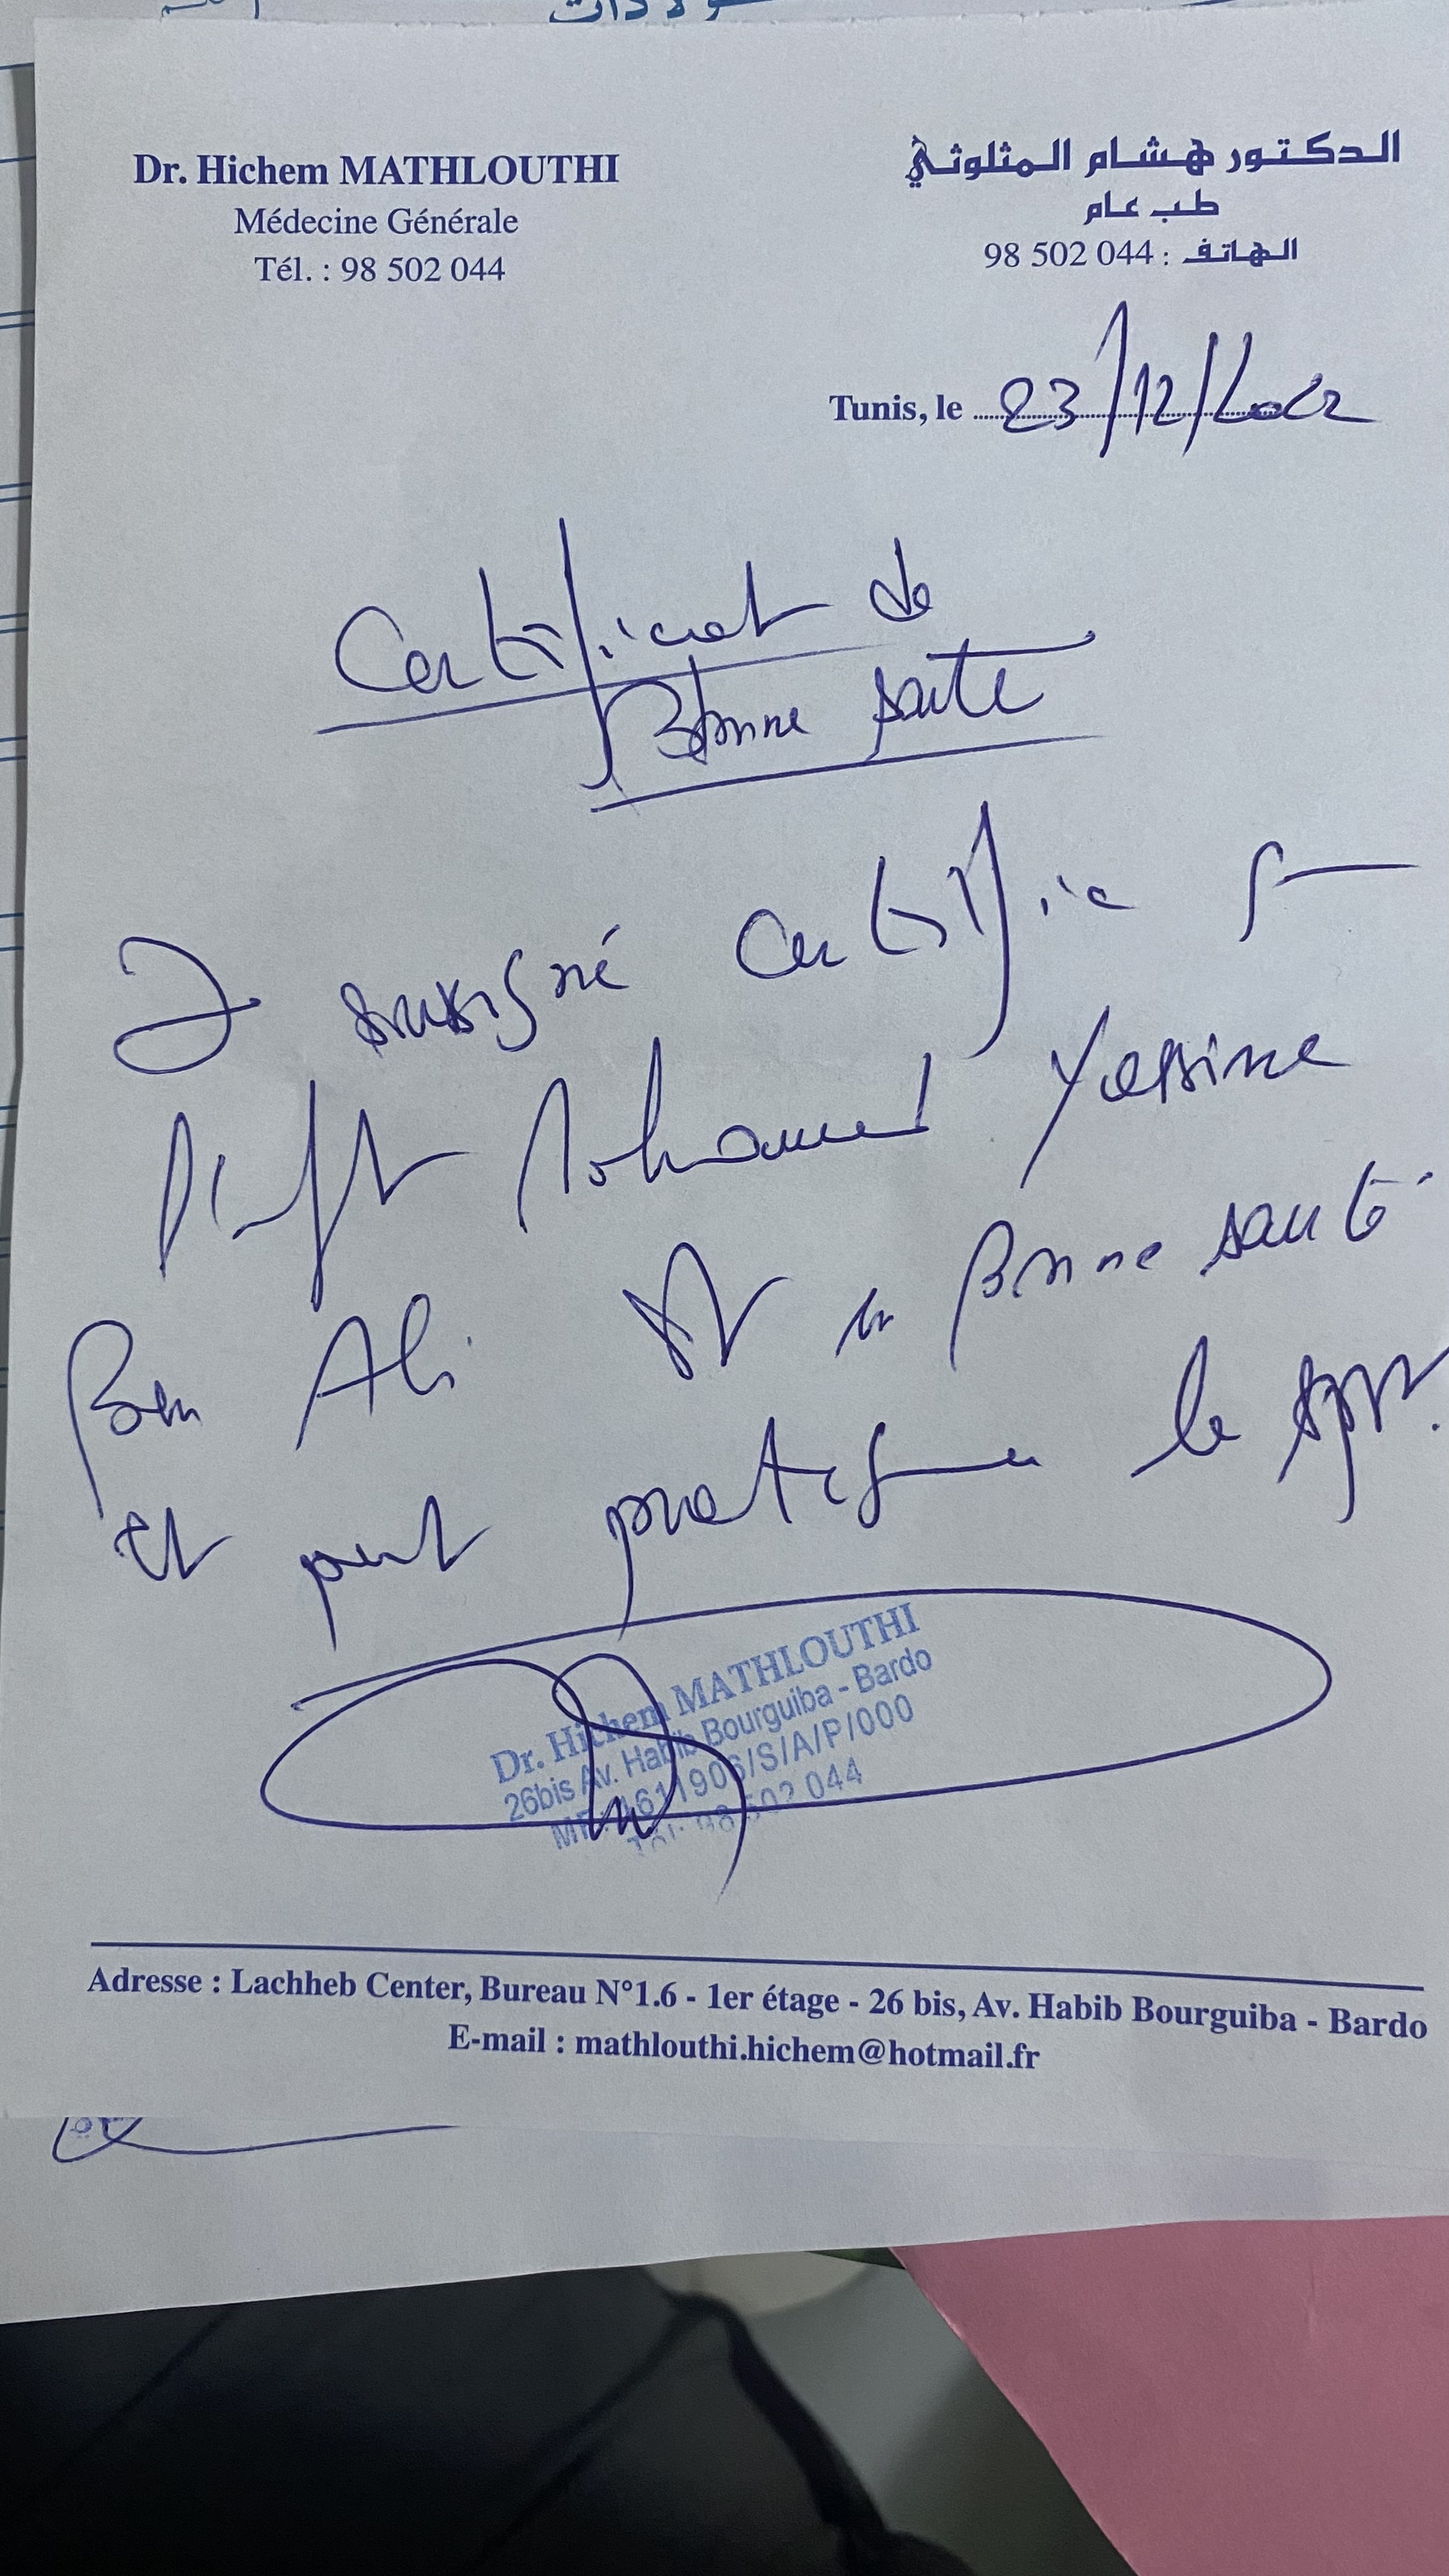 Dr. Hichem MATHLOUTHI
Médecine Générale
Tél. : 98 502 044
الدكتور هشام المثلوثي
طب عام
الهاتف : 98 502 044
Tunis, le 23/12/2022
Certificat de
Bonne santé
Je soussigné certifie q
Mohamed Yassine
Ben Ali est en Bonne santé
et peut pratiquer le sport.
Dr. Hichem MATHLOUTHI
26bis Av. Habib Bourguiba - Bardo
/S/A/P/000
Tél: 98 502 044
Adresse : Lachheb Center, Bureau N°1.6 - 1er étage - 26 bis, Av. Habib Bourguiba - Bardo
E-mail : mathlouthi.hichem@hotmail.fr